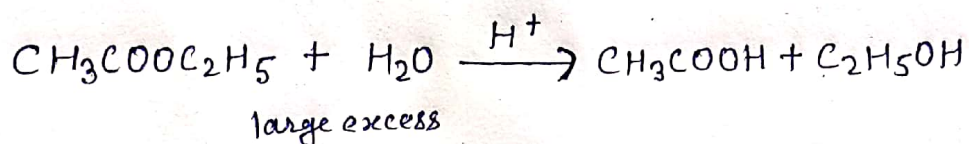 CH₃COOC₂H₅ + H₂O —H⁺→ CH₃COOH + C₂H₅OH
large excess